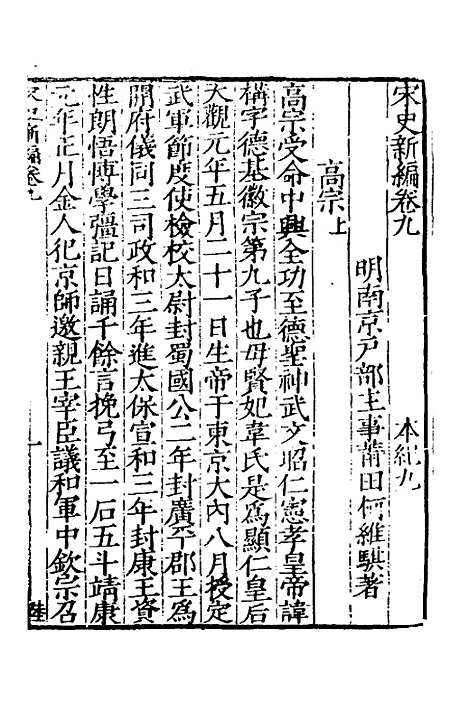 宋史新編卷九　本紀九
明南京戸部主事莆田柯維騏著
高宗上
高宗受命中興全功至德聖神武文昭仁憲孝皇帝諱
構字德基徽宗第九子也母賢妃韋氏是爲顯仁皇后
大觀元年五月二十一日生帝于東京大內八月授定
武軍節度使檢校太尉封蜀國公二年封廣平郡王爲
開府儀同三司政和三年進太保宣和三年封康王資
性朗悟博學彊記日誦千餘言挽弓至一石五斗靖康
元年正月金人犯京師邀親王宰臣議和軍中欽宗召
宋史新編卷九
一